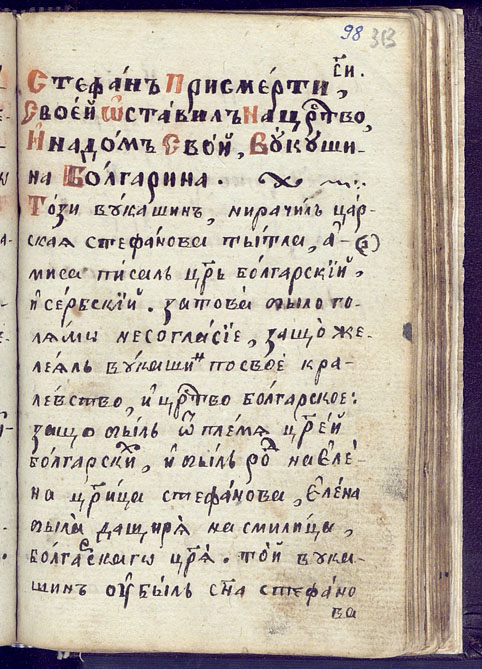 98 313
Стефа́нъ При сме́рти си.
Свое́й ѿста́вилъ На црⷭ҇тво,
И на до́мъ Сво́й, Ву́куши-
на Бо́лгарина.
То́зи ву́кашинъ, ни рачи́лъ ца́р-
ская стефа́нова ты́тла, а҆-
ми са пи́салъ цр҃ь бо́лгарскїй,
и҆ се́рбскїй. затова было го-
ля́мѡ несогла́сїе, защо̀ же-
лея́лъ ву́кашинъ по своѐ кра-
ле́вство, и҆ црⷭ҇тво болга́рское:
защо̀ былъ ѿ пле́мя цр҃е́й
бо́лгарскїй, и҆ былъ роⷣ на Еле́-
на цр҃и́ца стефа́нова, Еле́на
была да́щиря на смили́ца,
бо́лгарскагѡ цр҃я̀. то́й ву́ка-
шинъ оу҆бы́лъ сн҃а стефа́но
ва